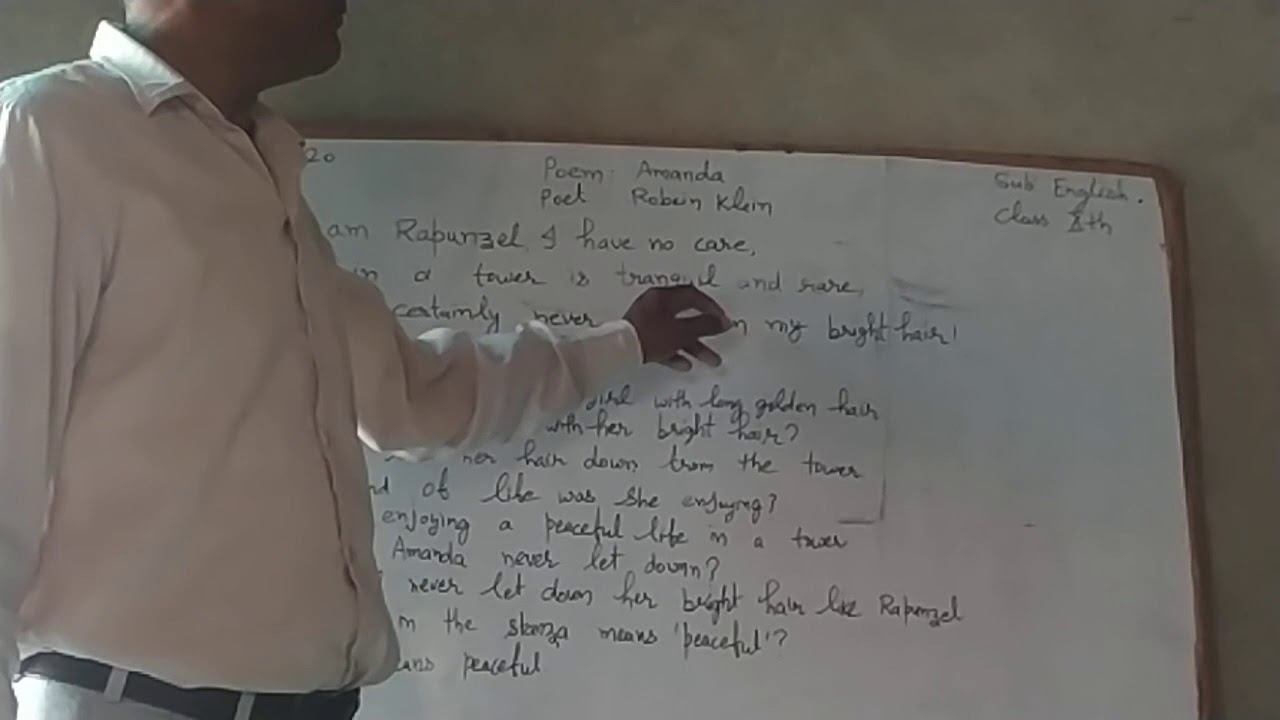 20
Poem: Amanda
Poet Robein Klein
Sub English.
Class Xth
am Rapunzel, I have no care,
in a tower is tranquil and rare,
certainly never my bright hair!
girl with long golden hair
with her bright hair?
her hair down from the tower
of life was she enjoying?
enjoying a peaceful life in a tower
Amanda never let down?
never let down her bright hair like Rapunzel
in the stanza means 'peaceful'?
means peaceful